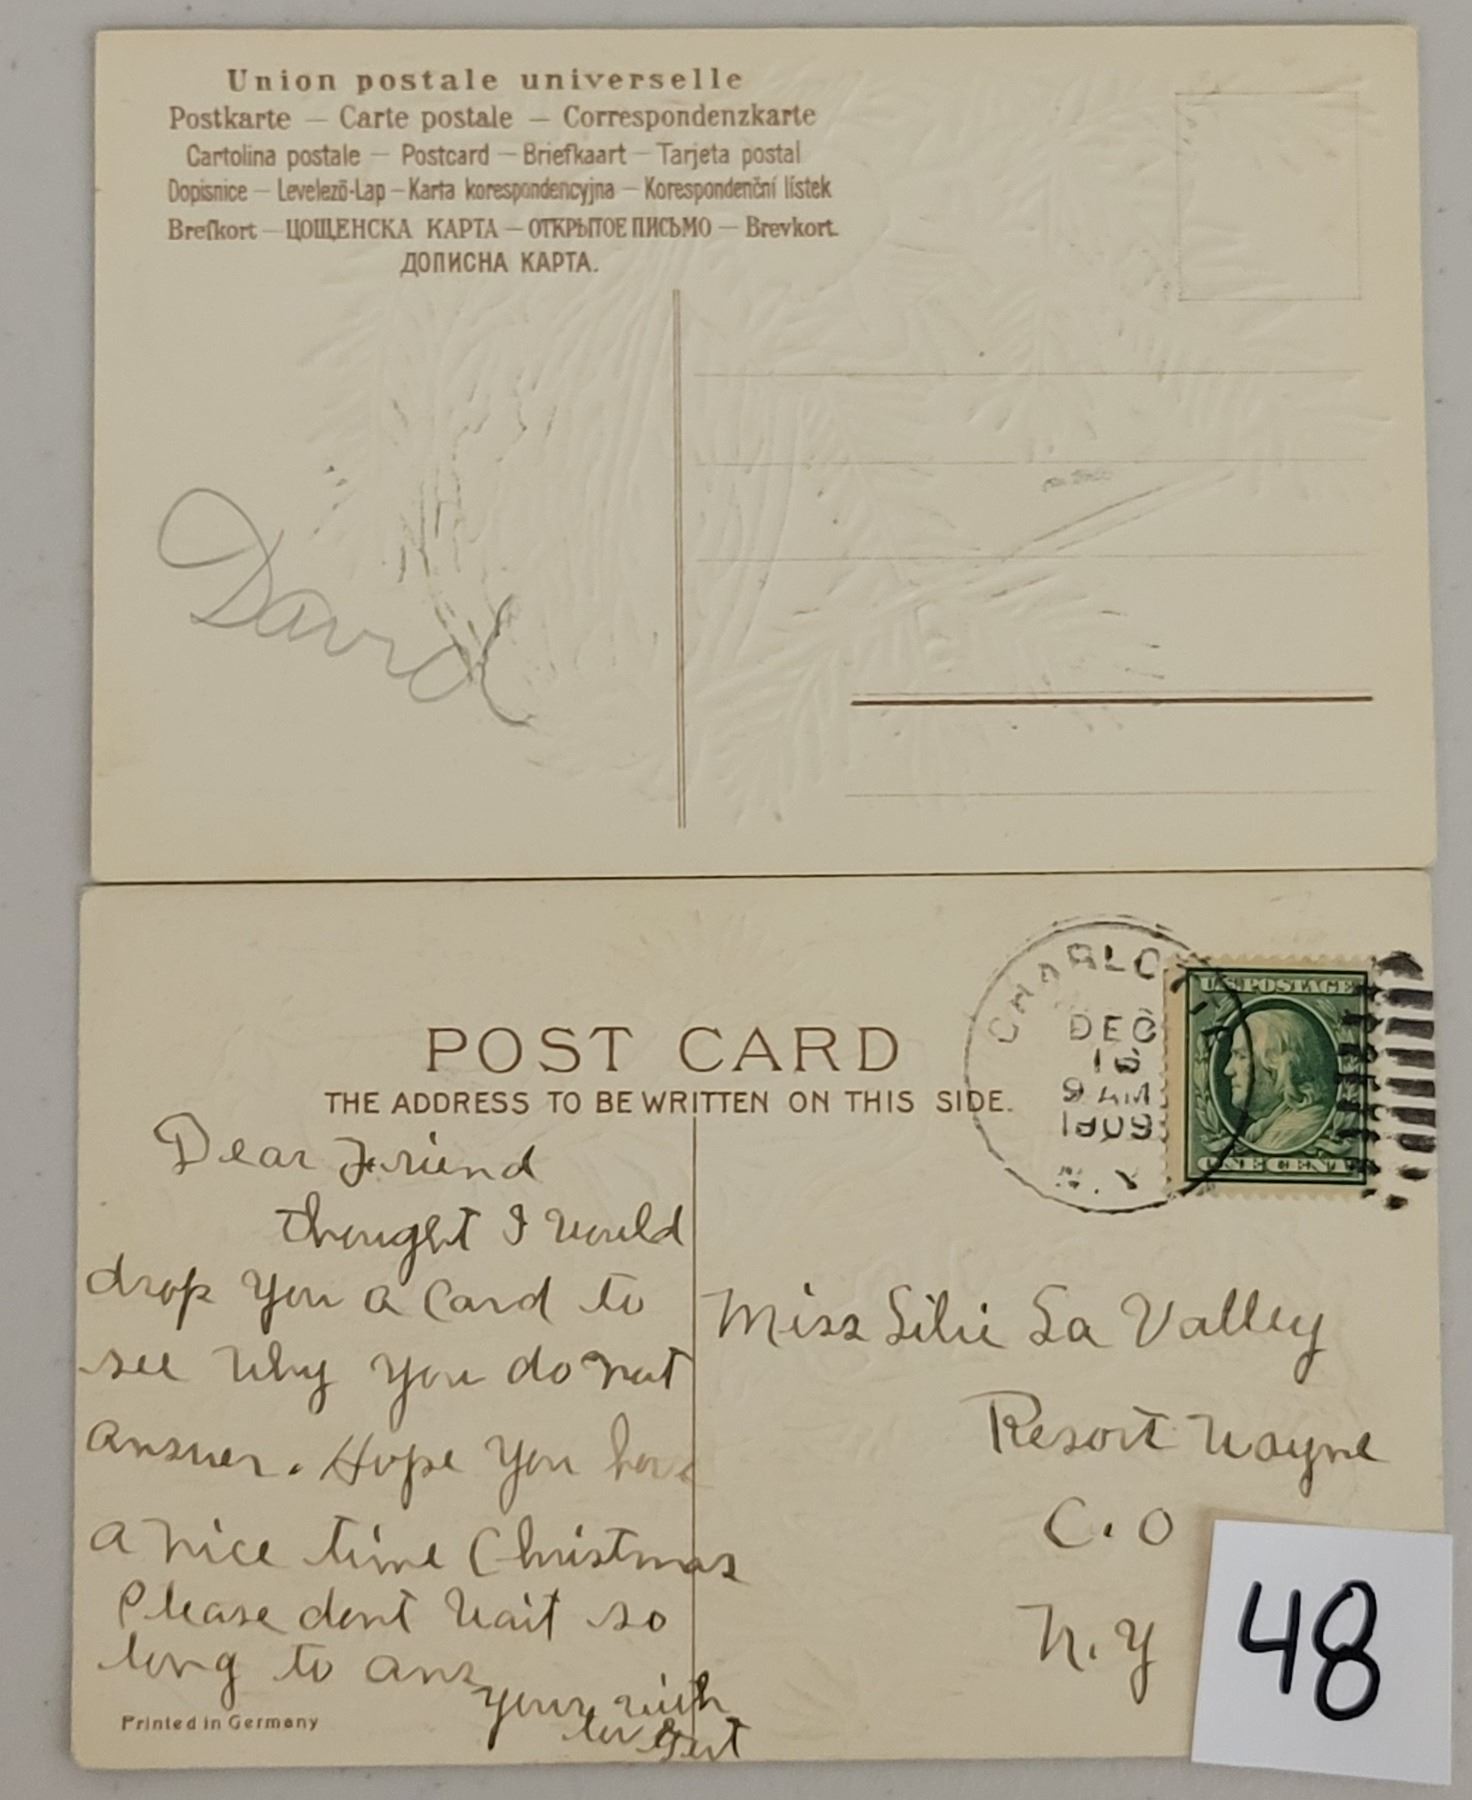 Union postale universelle
Postkarte — Carte postale — Correspondenzkarte
Cartolina postale — Postcard — Briefkaart — Tarjeta postal
Dopisnice — Levelező-Lap — Karta korespondencyjna — Korespondenční lístek
Brefkort — ЦОЩЕНСКА КАРТА — ОТКРЫТОЕ ПИСЬМО — Brevkort.
ДОПИСНА КАРТА.
David
POST CARD
THE ADDRESS TO BE WRITTEN ON THIS SIDE.
CHARLOTTE
DEC
16
9 AM
1909
N.Y.
U.S. POSTAGE
ONE CENT
Dear Friend
thought I would
drop you a Card to
see why you do not
answer. Hope you have
a nice time Christmas
Please dont wait so
long to ans
yours with
love Gert
Printed in Germany
Miss Lilie La Valley
Resort Wayne
C.O
N.Y
48